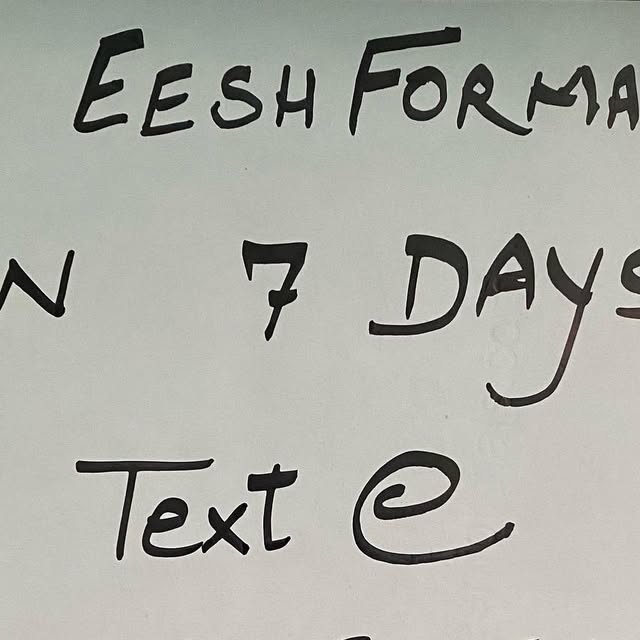 EESH FORMA
N 7 DAYS
Text e